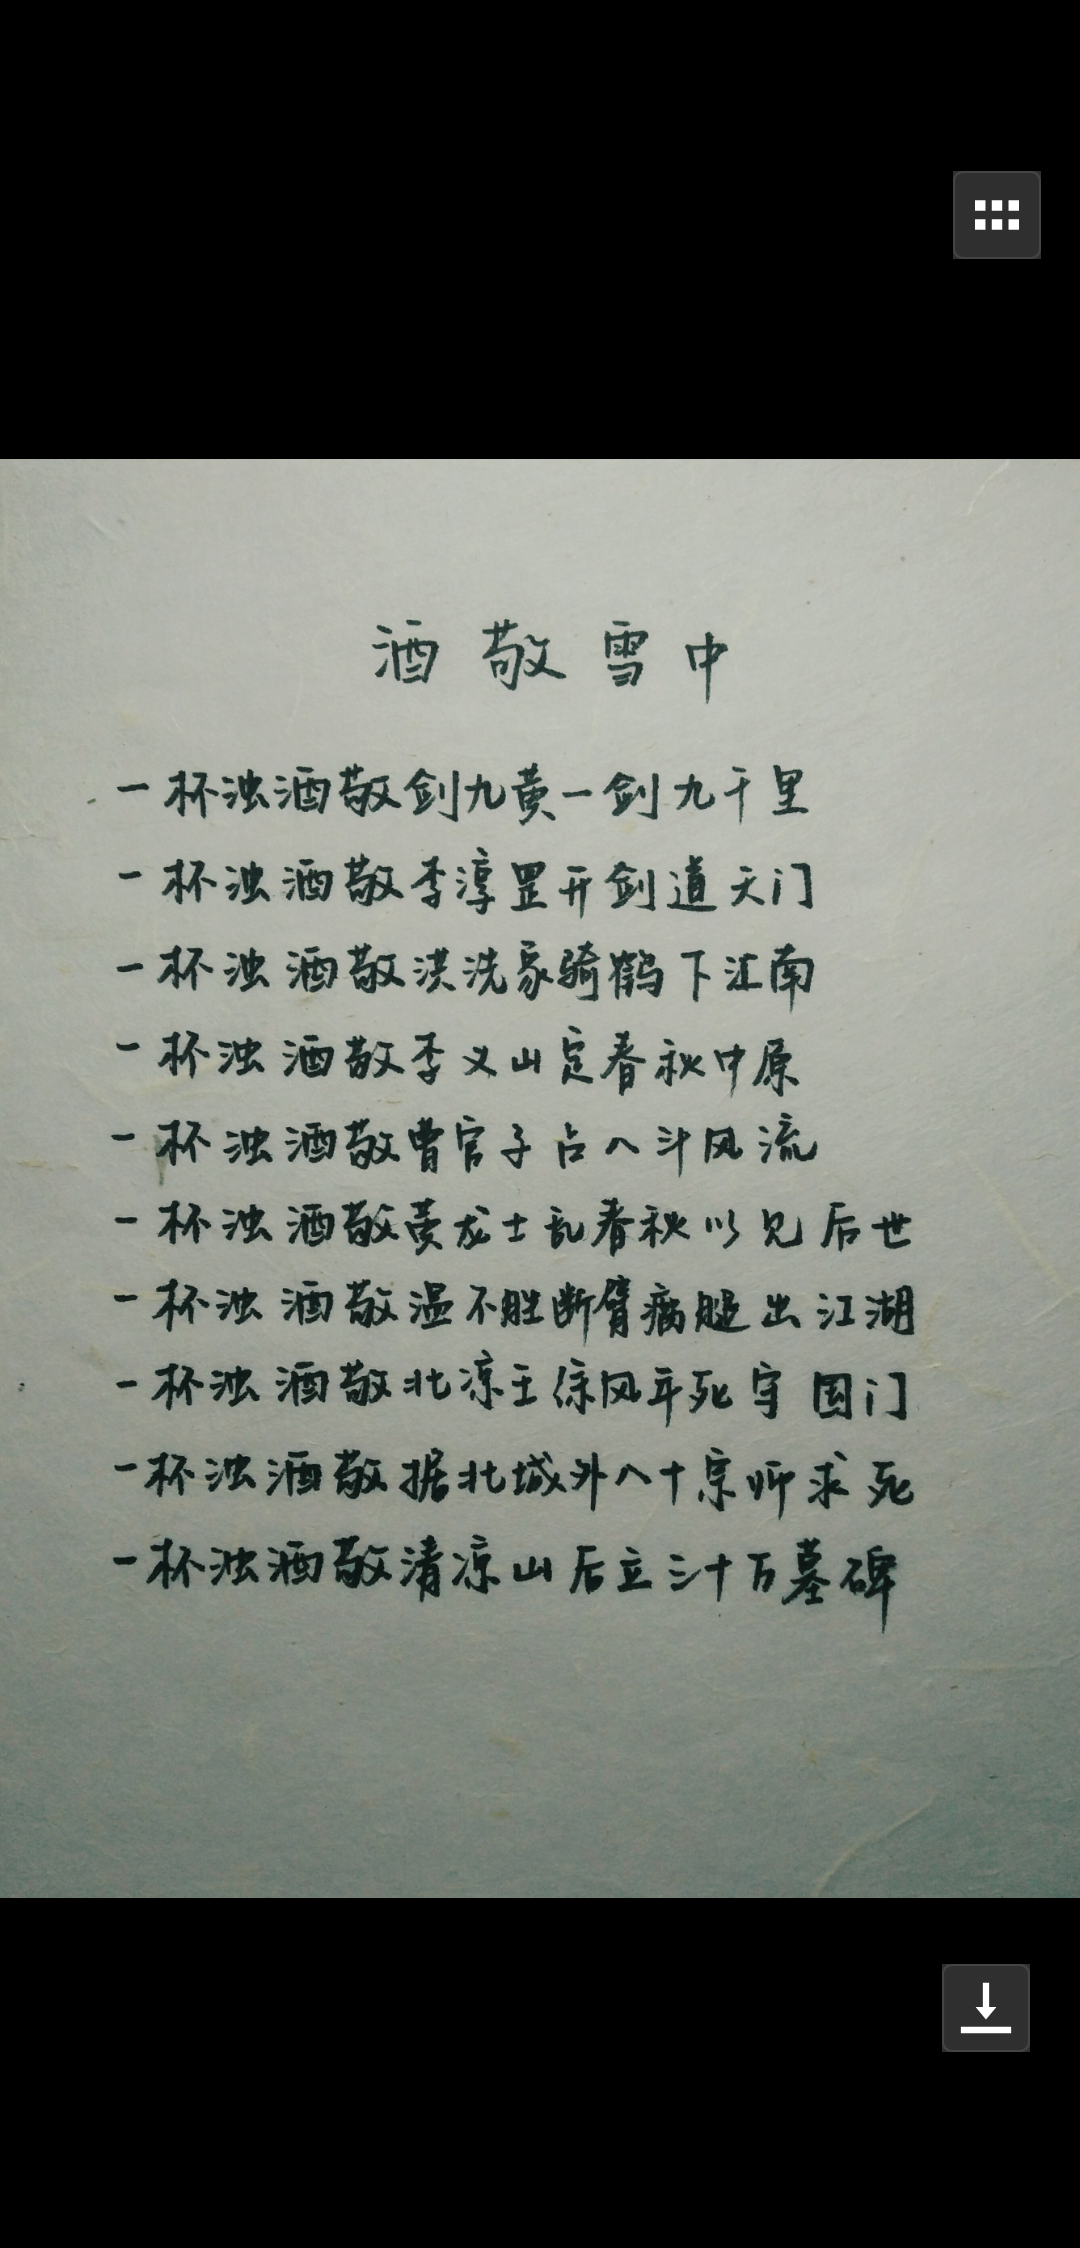 酒敬雪中
一杯浊酒敬剑九黄一剑九千里
一杯浊酒敬李淳罡开剑道天门
一杯浊酒敬洪洗象骑鹤下江南
一杯浊酒敬李义山定春秋中原
一杯浊酒敬曹官子占八斗风流
一杯浊酒敬黄龙士乱春秋以见后世
一杯浊酒敬温不胜断臂瘸腿出江湖
一杯浊酒敬北凉王徐风年死守国门
一杯浊酒敬据北城外八十宗师求死
一杯浊酒敬清凉山后立三十万墓碑